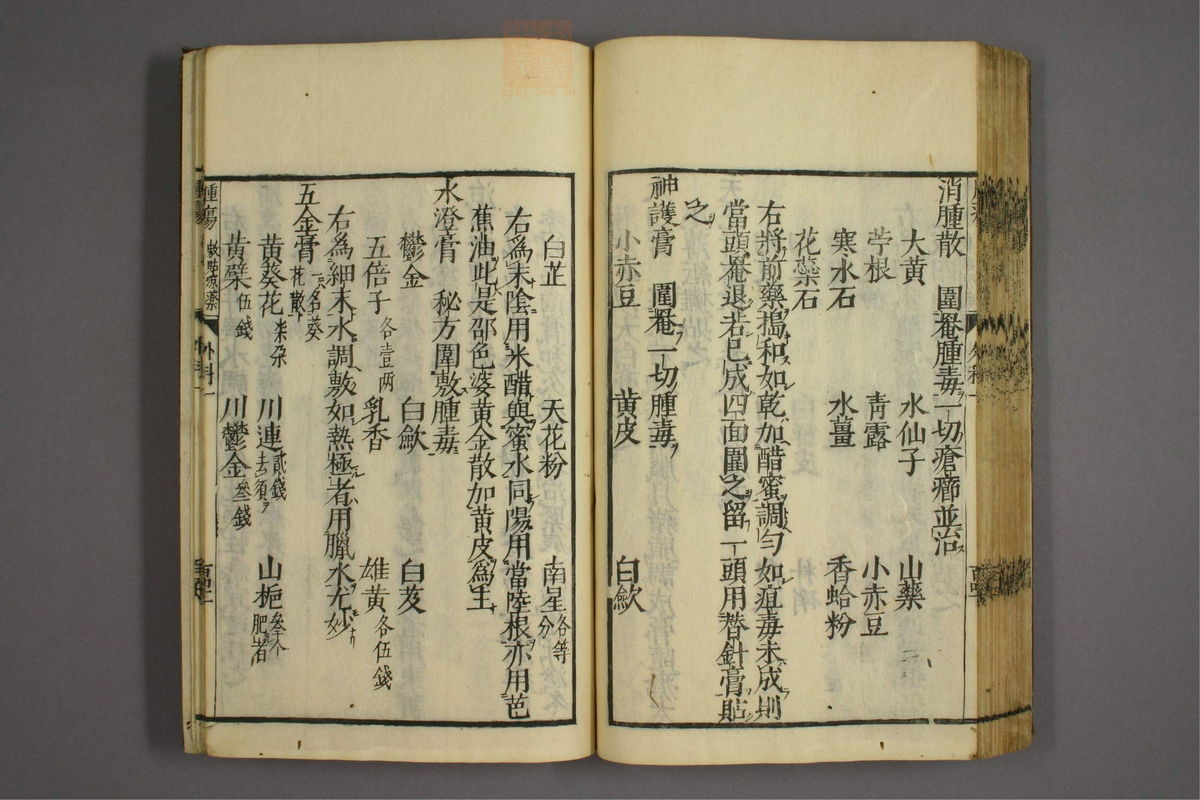 消腫散　圍罨腫毒一切瘡癤並治
大黃　水仙子　山藥
苧根　青露　小赤豆
寒水石　水薑　香蛤粉
花蘂石
右將前藥搗和如乾加醋蜜調勻如疽毒未成則
當頭罨退若已成四面圍之留一頭用替針膏貼
之
神護膏　圍罨一切腫毒
小赤豆　黃皮　白歛
白芷　天花粉　南星各等分
右為末陰用米醋與蜜水同陽用當陸根亦用芭
蕉油此是邵色婆黃金散加黃皮為主
水澄膏　秘方圍敷腫毒
鬱金　白歛　白芨
五倍子各壹两　乳香　雄黃各伍錢
右為細末水調敷如熱極者用臘水尤妙
五金膏一名葵花散
黃葵花　川連貳錢去須　山梔叁个肥者
黃檗伍錢　川鬱金叁錢
腫瘍　敷貼涼藥　外科一